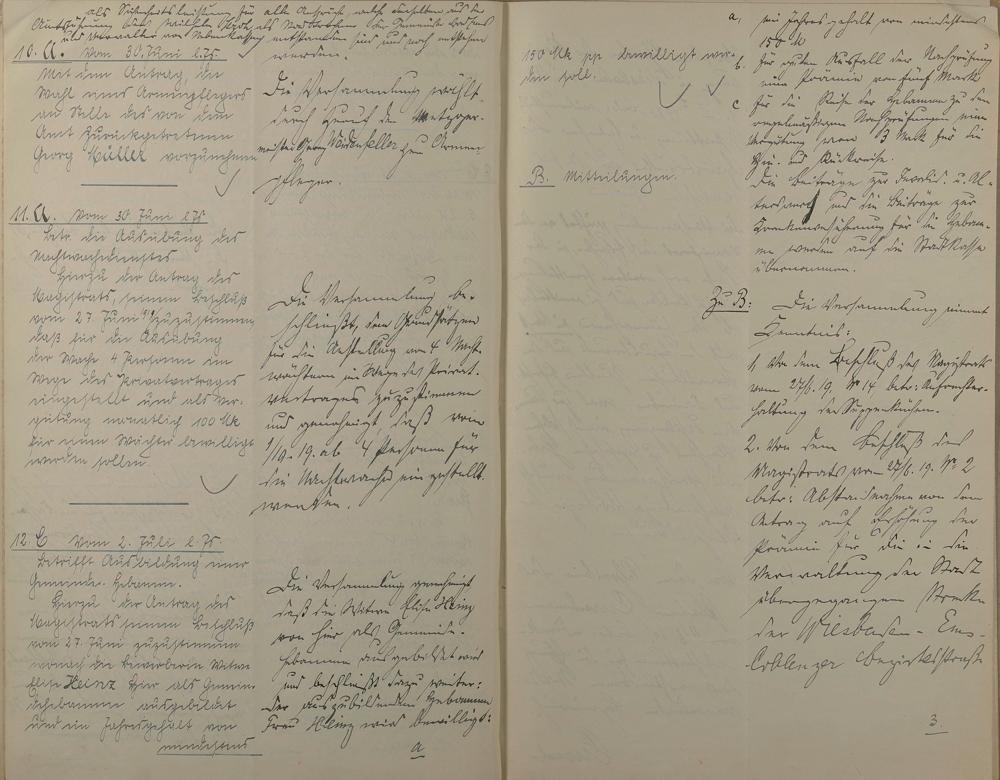 als Sicherheitsleistung für alle Ansprüche welche derselben aus der
Amtsführung des als Vorsteher der Gemeinde
als Verwalter von Nebenkassen entstanden sind und noch entstehen
werden.
10. A. Vom 30. Juni l. Js.
Mit dem Antrag, die
Wahl eines Armenpflegers
an Stelle des von dem
Amt zurückgetretenen
Georg Müller vorzunehmen
Die Versammlung wählt
durch Zuruf den Metzger-
meister Georg zum Armen-
pfleger.
11. A. Vom 30. Juni l. Js.
Betr. die Ausübung des
Nachtwachdienstes
Hierzu der Antrag des
Magistrats, seinem Beschluß
vom 27. Juni zuzustimmen,
daß für die Ausübung
der Wache 4 Personen im
Wege des Privatvertrages
eingestellt und als Ver-
gütung monatlich 100 Mk
für einen Wächter bewilligt
werden sollen.
Die Versammlung be-
schließt, den Grundsätzen
für die Anstellung von 4 Nacht-
wächtern im Wege des Privat-
vertrages zuzustimmen
und genehmigt, daß vom
19. ab 4 Personen für
die Nachtwache eingestellt
werden.
12. C Vom 2. Juli l. Js.
Betrifft Ausbildung einer
Gemeinde-Hebamme.
Hierzu der Antrag des
Magistrats seinem Beschluß
vom 27. Juni zuzustimmen
wonach die Bewerberin Witwe
Elise Heinz hier als Gemein-
dehebamme ausgebildet
und ein Jahresgehalt von
mindestens
Die Versammlung genehmigt
daß die Witwe Elise Heinz
von hier als Gemeinde-
Hebamme ausgebildet wird
und beschließt dazu weiter:
Der auszubildenden Hebamme
Frau Heinz wird bewilligt:
a
150 Mk pp bewilligt wer-
den soll.
a, ein Jahresgehalt von mindestens
150 M
b. für guten Ausfall der Nachprüfung
eine Prämie von fünf Mark
c für die Reise der Hebamme zu den
regelmäßigen Nachprüfungen eine
Vergütung von 3 Mark für die
Hin- und Rückreise.
Die Beiträge zur Invalid. u. Al-
tersvers. und die Beiträge zur
Krankenversicherung für die Hebam-
me werden auf die Stadtkasse
übernommen.
B. Mitteilungen.
Zu B:
Die Versammlung nimmt
Kenntnis:
1, Von dem Beschluß des Magistrats
vom 27/6. 19. No 14 betr: Aufrechter-
haltung der Suppenküchen.
2. Von dem Beschluß des
Magistrats vom 27/6. 19. No 2
betr: Abstandnahme von dem
Antrag auf Erhöhung der
Prämie für die in die
Verwaltung der Stadt
übergegangene Strecke
der Wiesbaden-Ems-
Coblenzer Bezirksstraße
3.